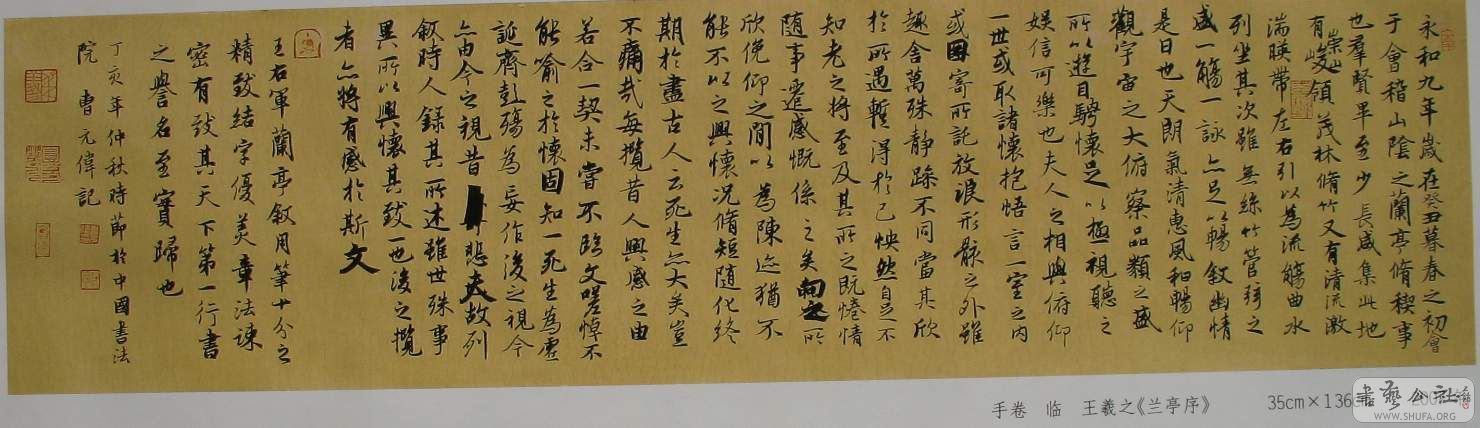 永和九年歲在癸丑暮春之初會
于會稽山陰之蘭亭脩稧事
也羣賢畢至少長咸集此地
有崇山峻領茂林脩竹又有清流激
湍暎帶左右引以為流觴曲水
列坐其次雖無絲竹管弦之
盛一觴一詠亦足以暢敘幽情
是日也天朗氣清惠風和暢仰
觀宇宙之大俯察品類之盛
所以遊目騁懷足以極視聽之
娛信可樂也夫人之相與俯仰
一世或取諸懷抱悟言一室之內
或因寄所託放浪形骸之外雖
趣舍萬殊靜躁不同當其欣
於所遇暫得於己怏然自足不
知老之將至及其所之既惓情
隨事遷感慨係之矣向之所
欣俛仰之閒以為陳迹猶不
能不以之興懷況脩短隨化終
期於盡古人云死生亦大矣豈
不痛哉每攬昔人興感之由
若合一契未嘗不臨文嗟悼不
能喻之於懷固知一死生為虛
誕齊彭殤為妄作後之視今
亦由今之視昔 悲夫故列
敘時人錄其所述雖世殊事
異所以興懷其致一也後之攬
者亦將有感於斯文
王右軍蘭亭敘用筆十分之
精致結字優美章法疎
密有致其天下第一行書
之譽名至實歸也
丁亥年仲秋時節於中國書法
院 曹元偉記
手卷 临 王羲之《兰亭序》 35cm×136
书艺公社
WWW.SHUFA.ORG